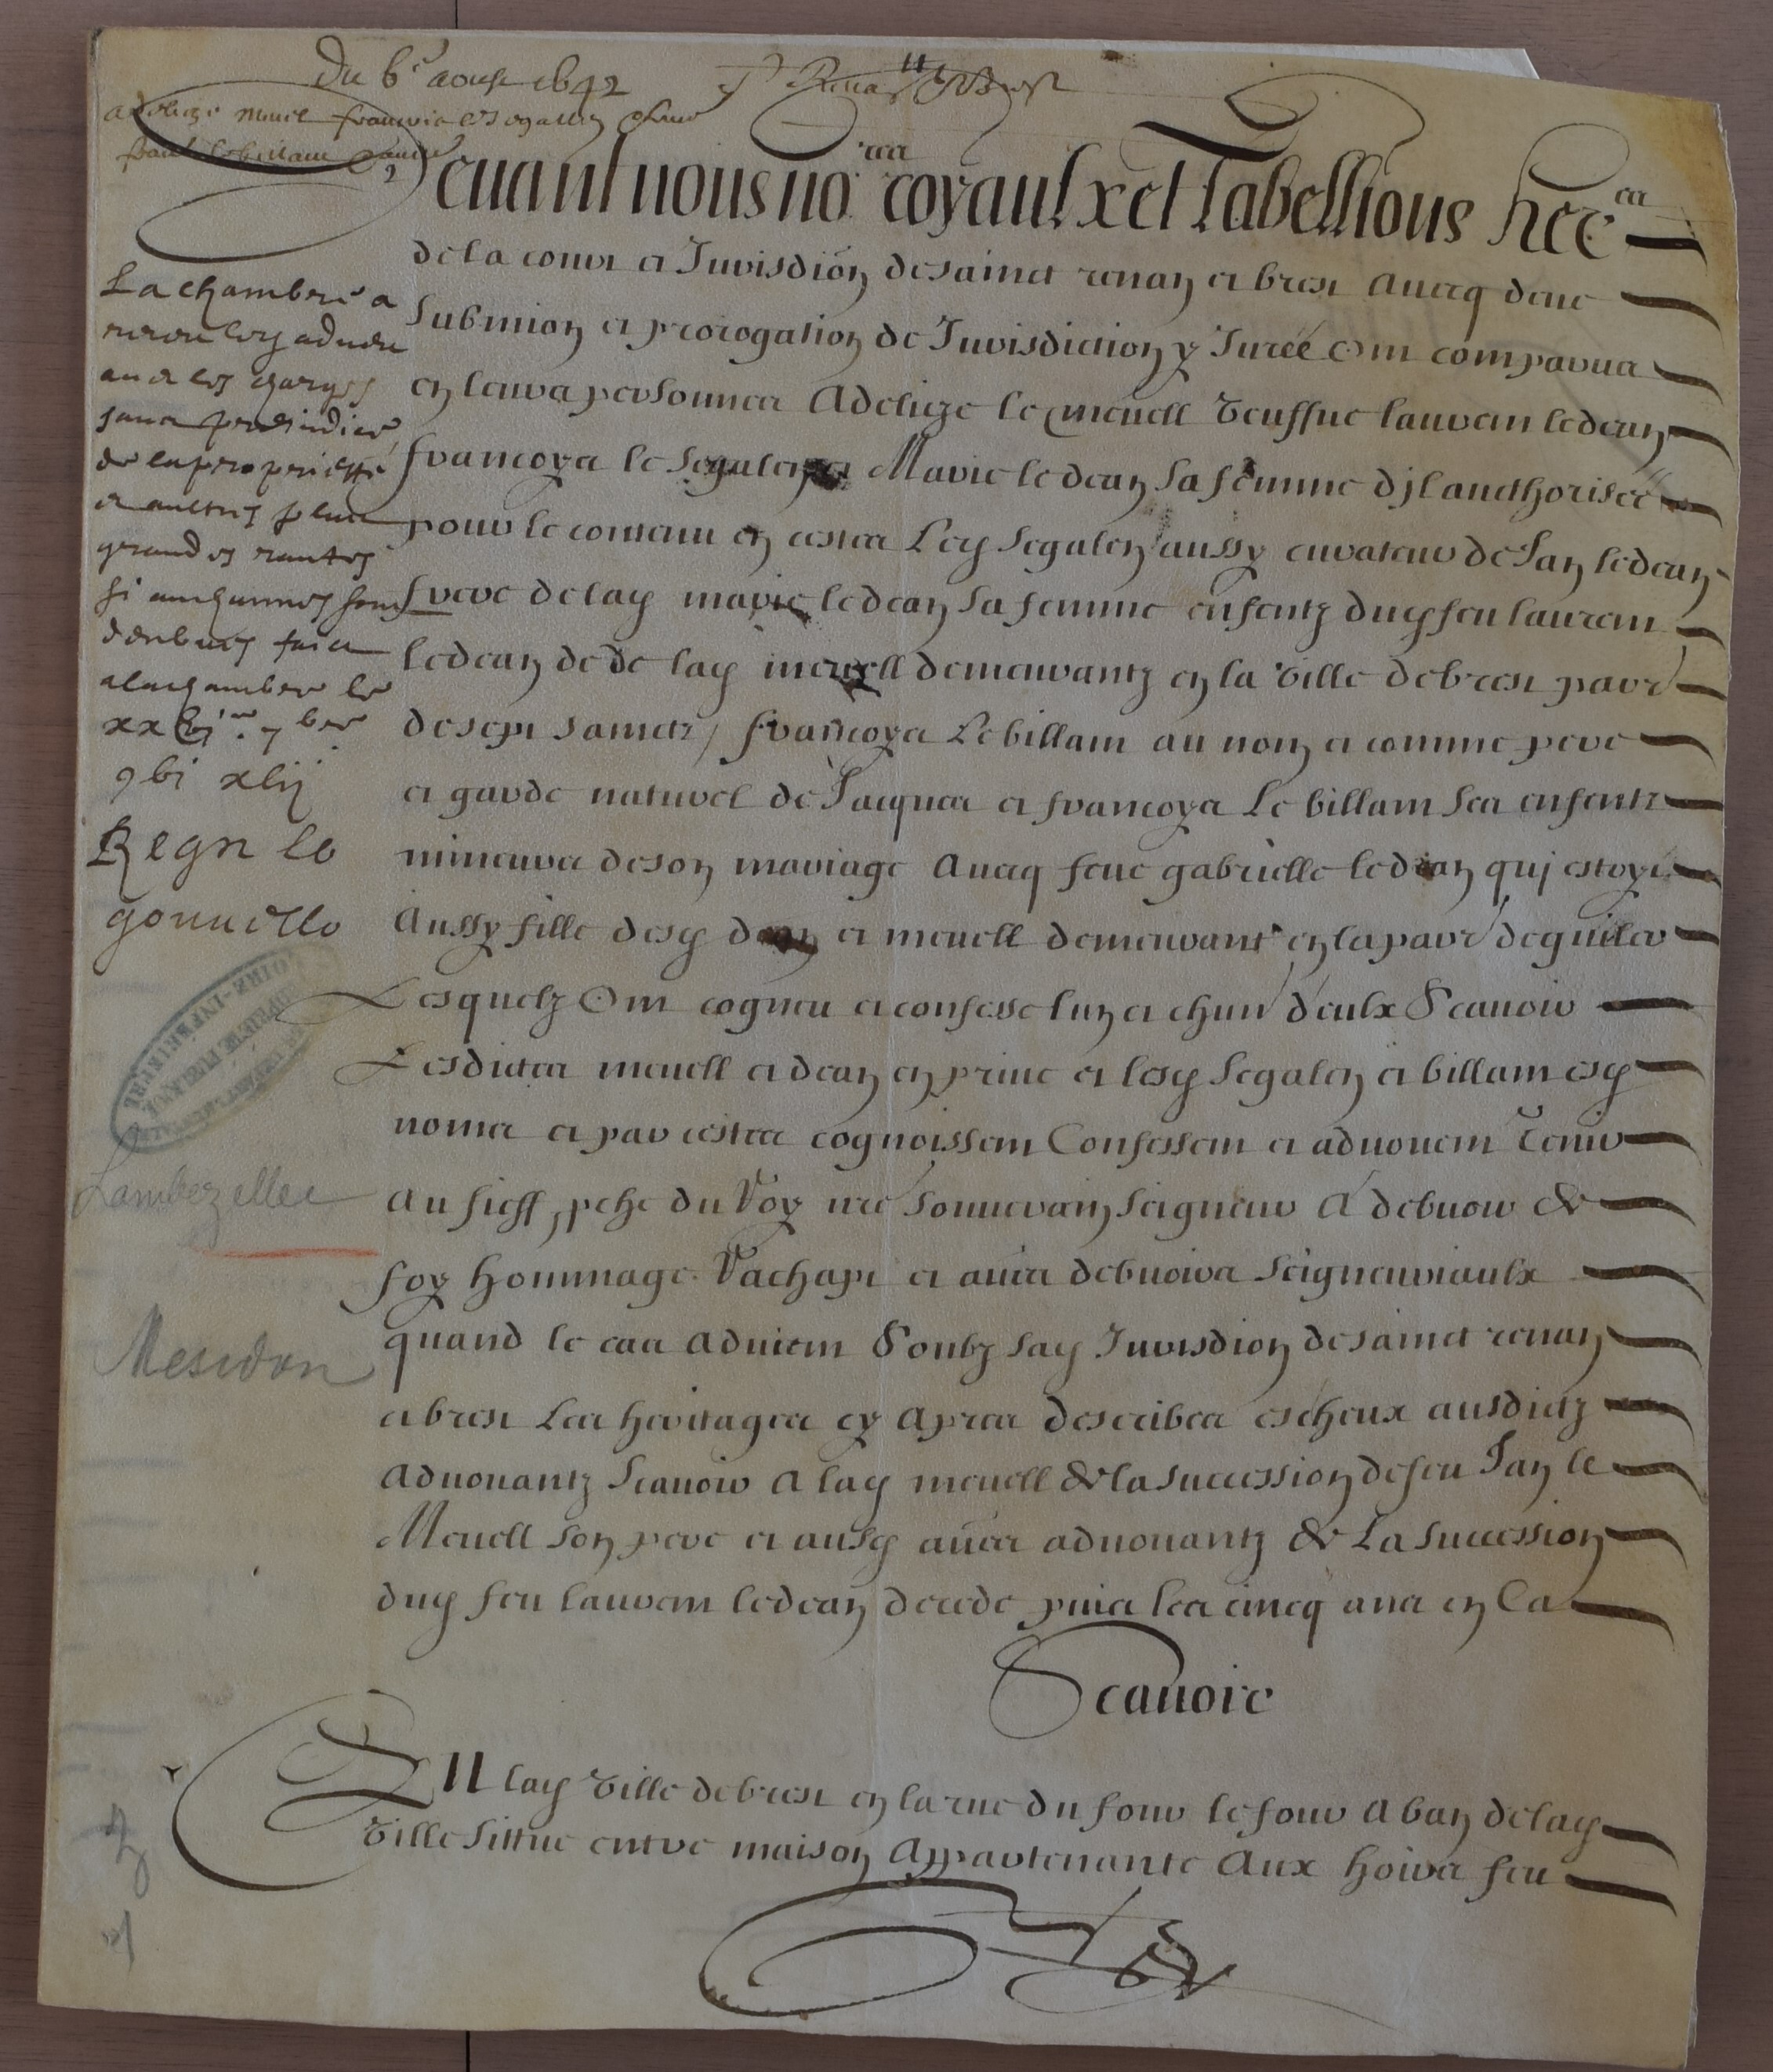 Du 6e aoust 1642
Adelize meuel francois le segallen
francois le billam
Deuant nous nores royaulx et Tabellions herres
de la court et Jurisdion de sainct renan et brest auecq deue
submion et prorogation de Jurisdiction y Jurée Ont comparus
en leurs personnes Adelize le meuell veuffue laurem ledean
francoys le segalen et Marie le dean sa femme d'jl aucthorisée
pour le contenu en cestes Led segalen aussy curateur de Jan ledean
frere de lad marie ledean sa femme enfentz dud feu laurem
ledean de de lad meuell demeurantz en la ville de brest parr
de sept sainctz / francoys Le billam au nom et comme pere
et garde naturel de Jacques et francoys Le billam ses enfentz
mineurs de son mariage auecq feue gabrielle ledean quj estoyt
Aussy fille desd dean et meuell demeurant en la parr de guiler
Lesquelz Ont cogneu et confesse lun et chun d'eulx Scauoir
Lesdictes meuell et dean en prive et lesd segalen et billam esd
noms et par cestes cognoissem Confessem et aduouem tenir
Au fieff, pche du Roy nre souuerain seigneur A debuoir de
foy hommage Rachapt et aues debuoirs seigneuriaulx
quand le cas aduiem Soubz lad Jurisdion de sainct renan
et brest Les heritages cy apres describes escheux ausdictz
Aduouantz scauoir A lad meuell de la succession de feu Jan le
Meuell son pere et ausd aues aduouantz de La succession
dud feu laurem ledean decede puis les cincq ans en ca
Scauoir
EN lad ville de brest en la rue du four le four A ban de lad
ville sittue entre maison Appartenante Aux hoirs feu
La chambre a
receu led adueu
aux les charges
sans preiudice
de la propriette
et aultres plus
grandes rantes
si auchunnes sont
debues faict
a la chambre le
xxvime 7bre
gbi xlij
Regn le
gouuello
LOIRE-INFÉRIEURE
PROPRIÉTÉ PUBLIQUE
Lambezellec
Mesidon